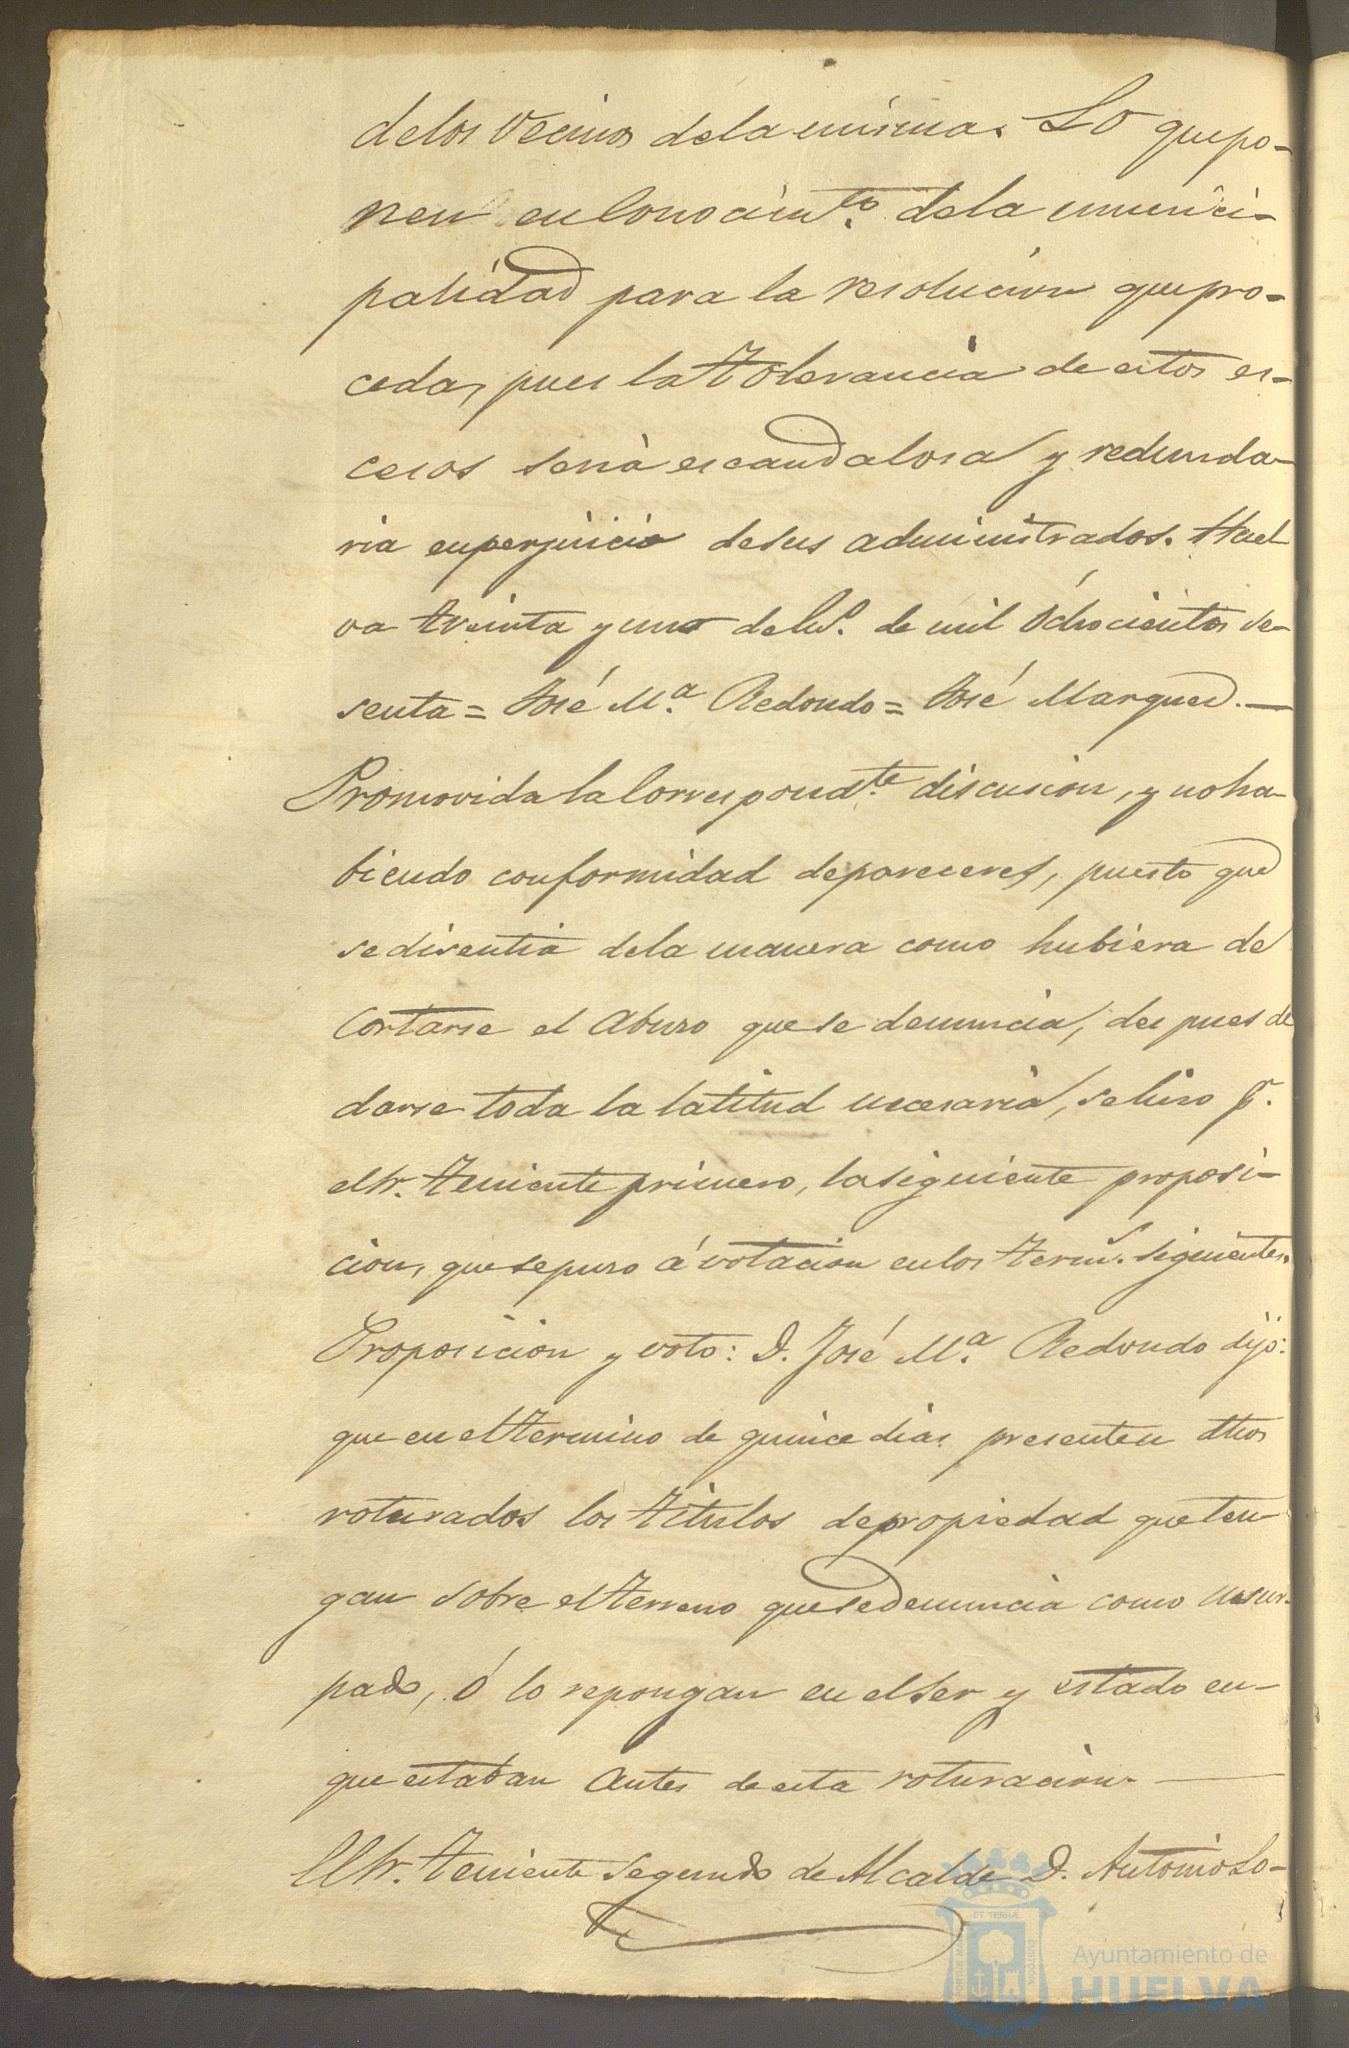 delos vecinos dela misma. Lo que po-
nen en conocim.to dela munici-
palidad para la resolucion que pro-
ceda, pues la tolerancia de estos es-
cesos seria escandalosa y redunda-
ria en perjuicio desus administrados. Huel
va treinta y uno de En.o de mil ochocientos se-
senta = José M.a Redondo = José Marquez. —
Promovida la correspond.te discusion, y no ha-
biendo conformidad de pareceres, puesto que
se disentia dela manera como hubiera de
cortarse el abuso que se denuncia, despues de
darse toda la latitud necesaria, se hizo p.r
el Sr. teniente primero, la siguiente proposi-
cion, que se puso á votacion en los term.s siguientes.
Proposicion y voto: D. José M.a Redondo dijo:
que en el termino de quince dias presenten dhos
roturados los titulos de propiedad que ten-
gan sobre el terreno que se denuncia como usur-
pado, ó lo repongan en el ser y estado en-
que estaban antes de esta roturacion. —
El Sr. teniente segundo de Alcalde D. Antonio Lo-
ET TERRÆ
PORTUS MARIS
CUSTODIA
Ayuntamiento de
HUELVA